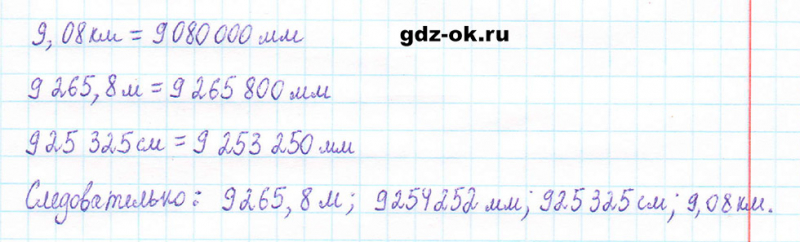 9,08 км = 9 080 000 мм
gdz-ok.ru
9 265,8 м = 9 265 800 мм
925 325 см = 9 253 250 мм
Следовательно: 9265,8 м; 9254252 мм; 925325 см; 9,08 км.